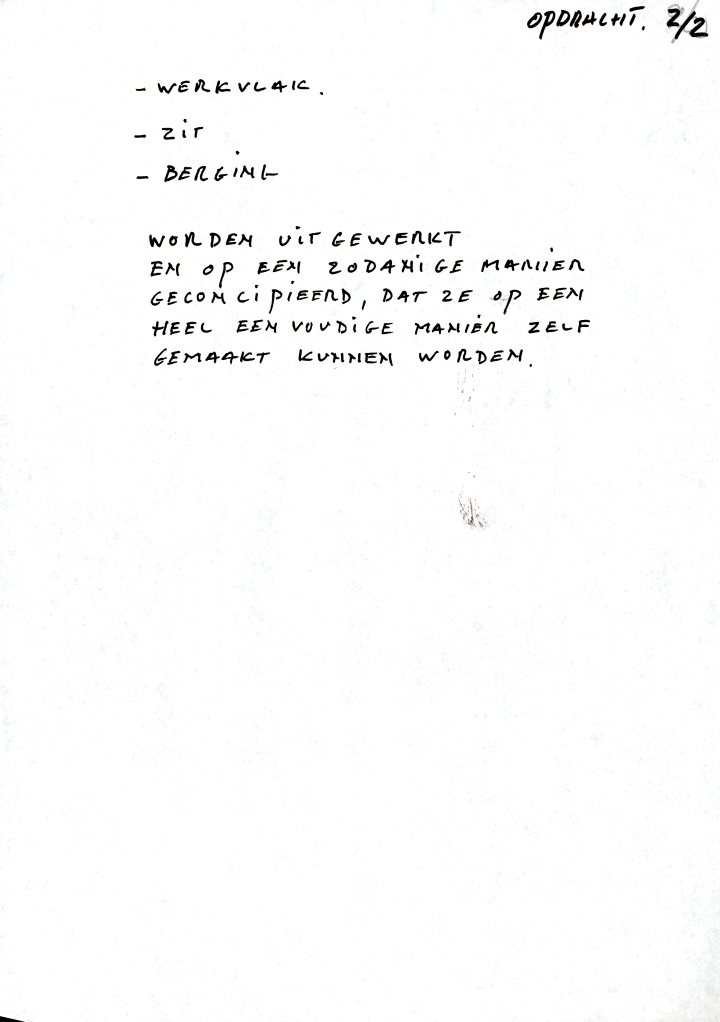 OPDRACHT. 2/2
- WERKVLAK.
- ZIT
- BERGING
WORDEN UITGEWERKT
EN OP EEN ZODANIGE MANIER
GECONCIPIEERD, DAT ZE OP EEN
HEEL EENVOUDIGE MANIER ZELF
GEMAAKT KUNNEN WORDEN.